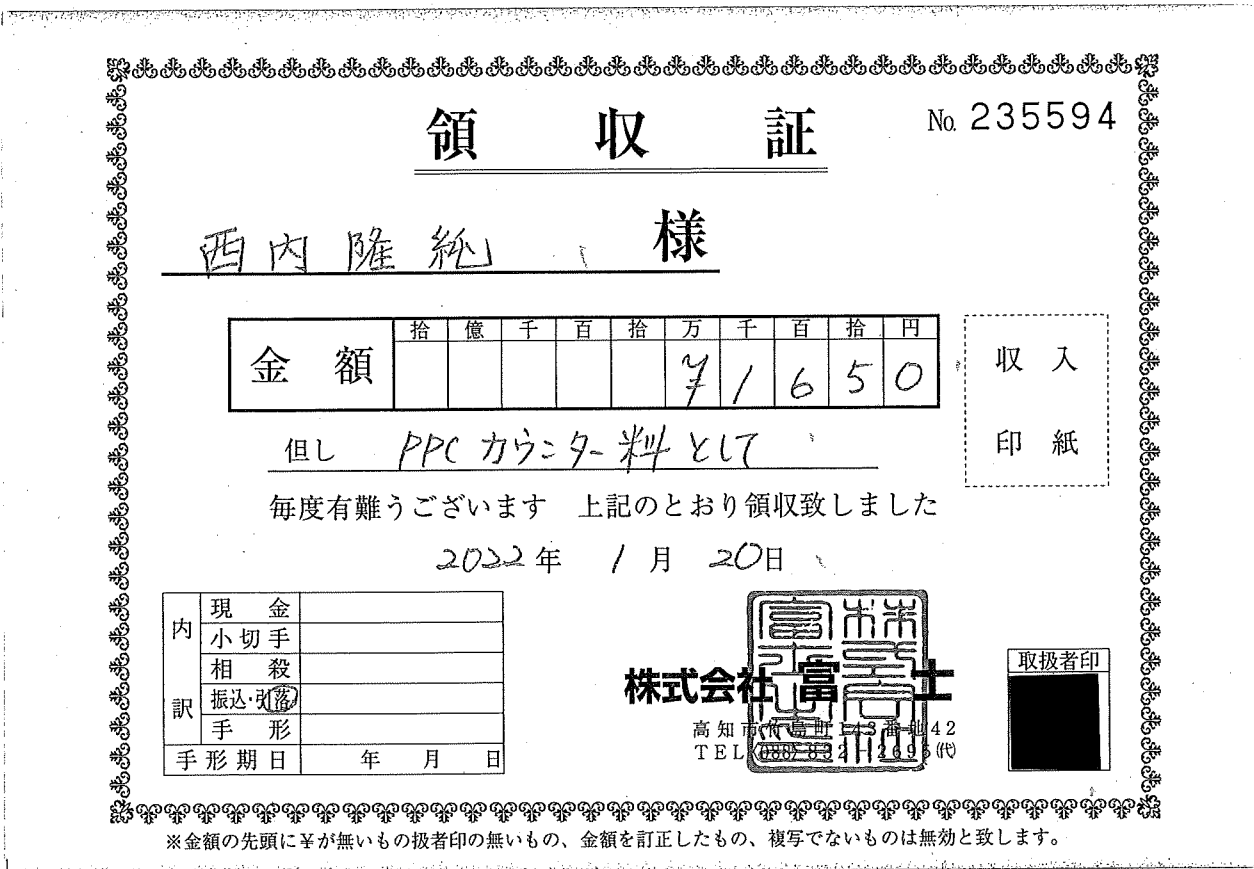 領収証
No. 235594
西内隆純 様
金額
拾 億 千 百 拾 万 千 百 拾 円
¥ 1 6 5 0
収入
印紙
但し PPCカウンター料として
毎度有難うございます 上記のとおり領収致しました
2022年 1月 20日
内訳
現金
小切手
相殺
振込・引落
手形
手形期日 年 月 日
株式会社 富士
高知市竹島町143番地42
TEL(088)832-2695(代)
取扱者印
※金額の先頭に¥が無いもの扱者印の無いもの、金額を訂正したもの、複写でないものは無効と致します。